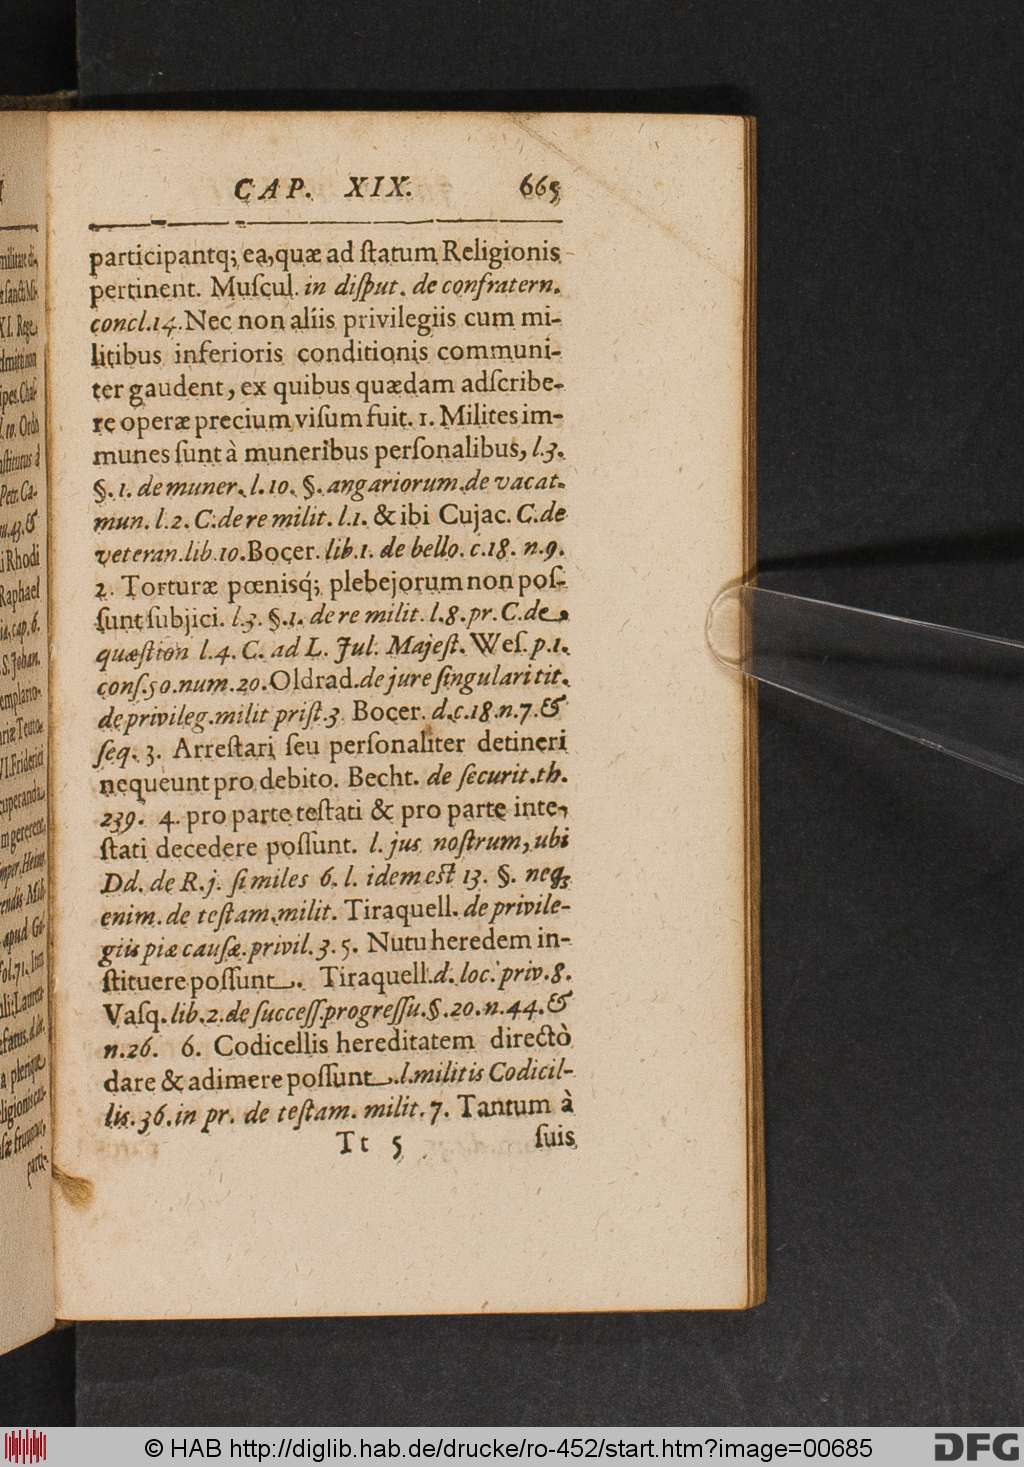 CAP. XIX. 665
participantq́; ea, quæ ad ſtatum Religionis
pertinent. Muſcul. in diſput. de confratern.
concl. 14. Nec non aliis privilegiis cum mi-
litibus inferioris conditionis communi-
ter gaudent, ex quibus quædam adſcribe-
re operæ precium viſum fuit. 1. Milites im-
munes ſunt à muneribus perſonalibus, l. 3.
§. 1. de muner. l. 10. §. angariorum. de vacat.
mun. l. 2. C. de re milit. l. 1. & ibi Cujac. C. de
veteran. lib. 10. Bocer. lib. 1. de bello. c. 18. n. 9.
2. Torturæ pœnisq́; plebejorum non poſ-
ſunt ſubjici. l. 3. §. 1. de re milit. l. 8. pr. C. de
quæſtion l. 4. C. ad L. Jul. Majeſt. Weſ. p. 1.
conſ. 50. num. 20. Oldrad. de jure ſingulari tit.
de privileg. milit priſt. 3 Bocer. d. c. 18. n. 7. &
ſeq. 3. Arreſtari ſeu perſonaliter detineri
nequeunt pro debito. Becht. de ſecurit. th.
239. 4. pro parte teſtati & pro parte inte-
ſtati decedere poſſunt. l. jus noſtrum, ubi
Dd. de R. j. ſi miles 6. l. idem eſt 13. §. neq;
enim. de teſtam. milit. Tiraquell. de privile-
giis piæ cauſæ. privil. 3. 5. Nutu heredem in-
ſtituere poſſunt. Tiraquell. d. loc. priv. 8.
Vaſq. lib. 2. de ſucceſſ. progreſſu. §. 20. n. 44. &
n. 26. 6. Codicellis hereditatem directò
dare & adimere poſſunt. l. militis Codicil-
lis. 36. in pr. de teſtam. milit. 7. Tantum à
Tt 5 ſuis
© HAB http://diglib.hab.de/drucke/ro-452/start.htm?image=00685
DFG